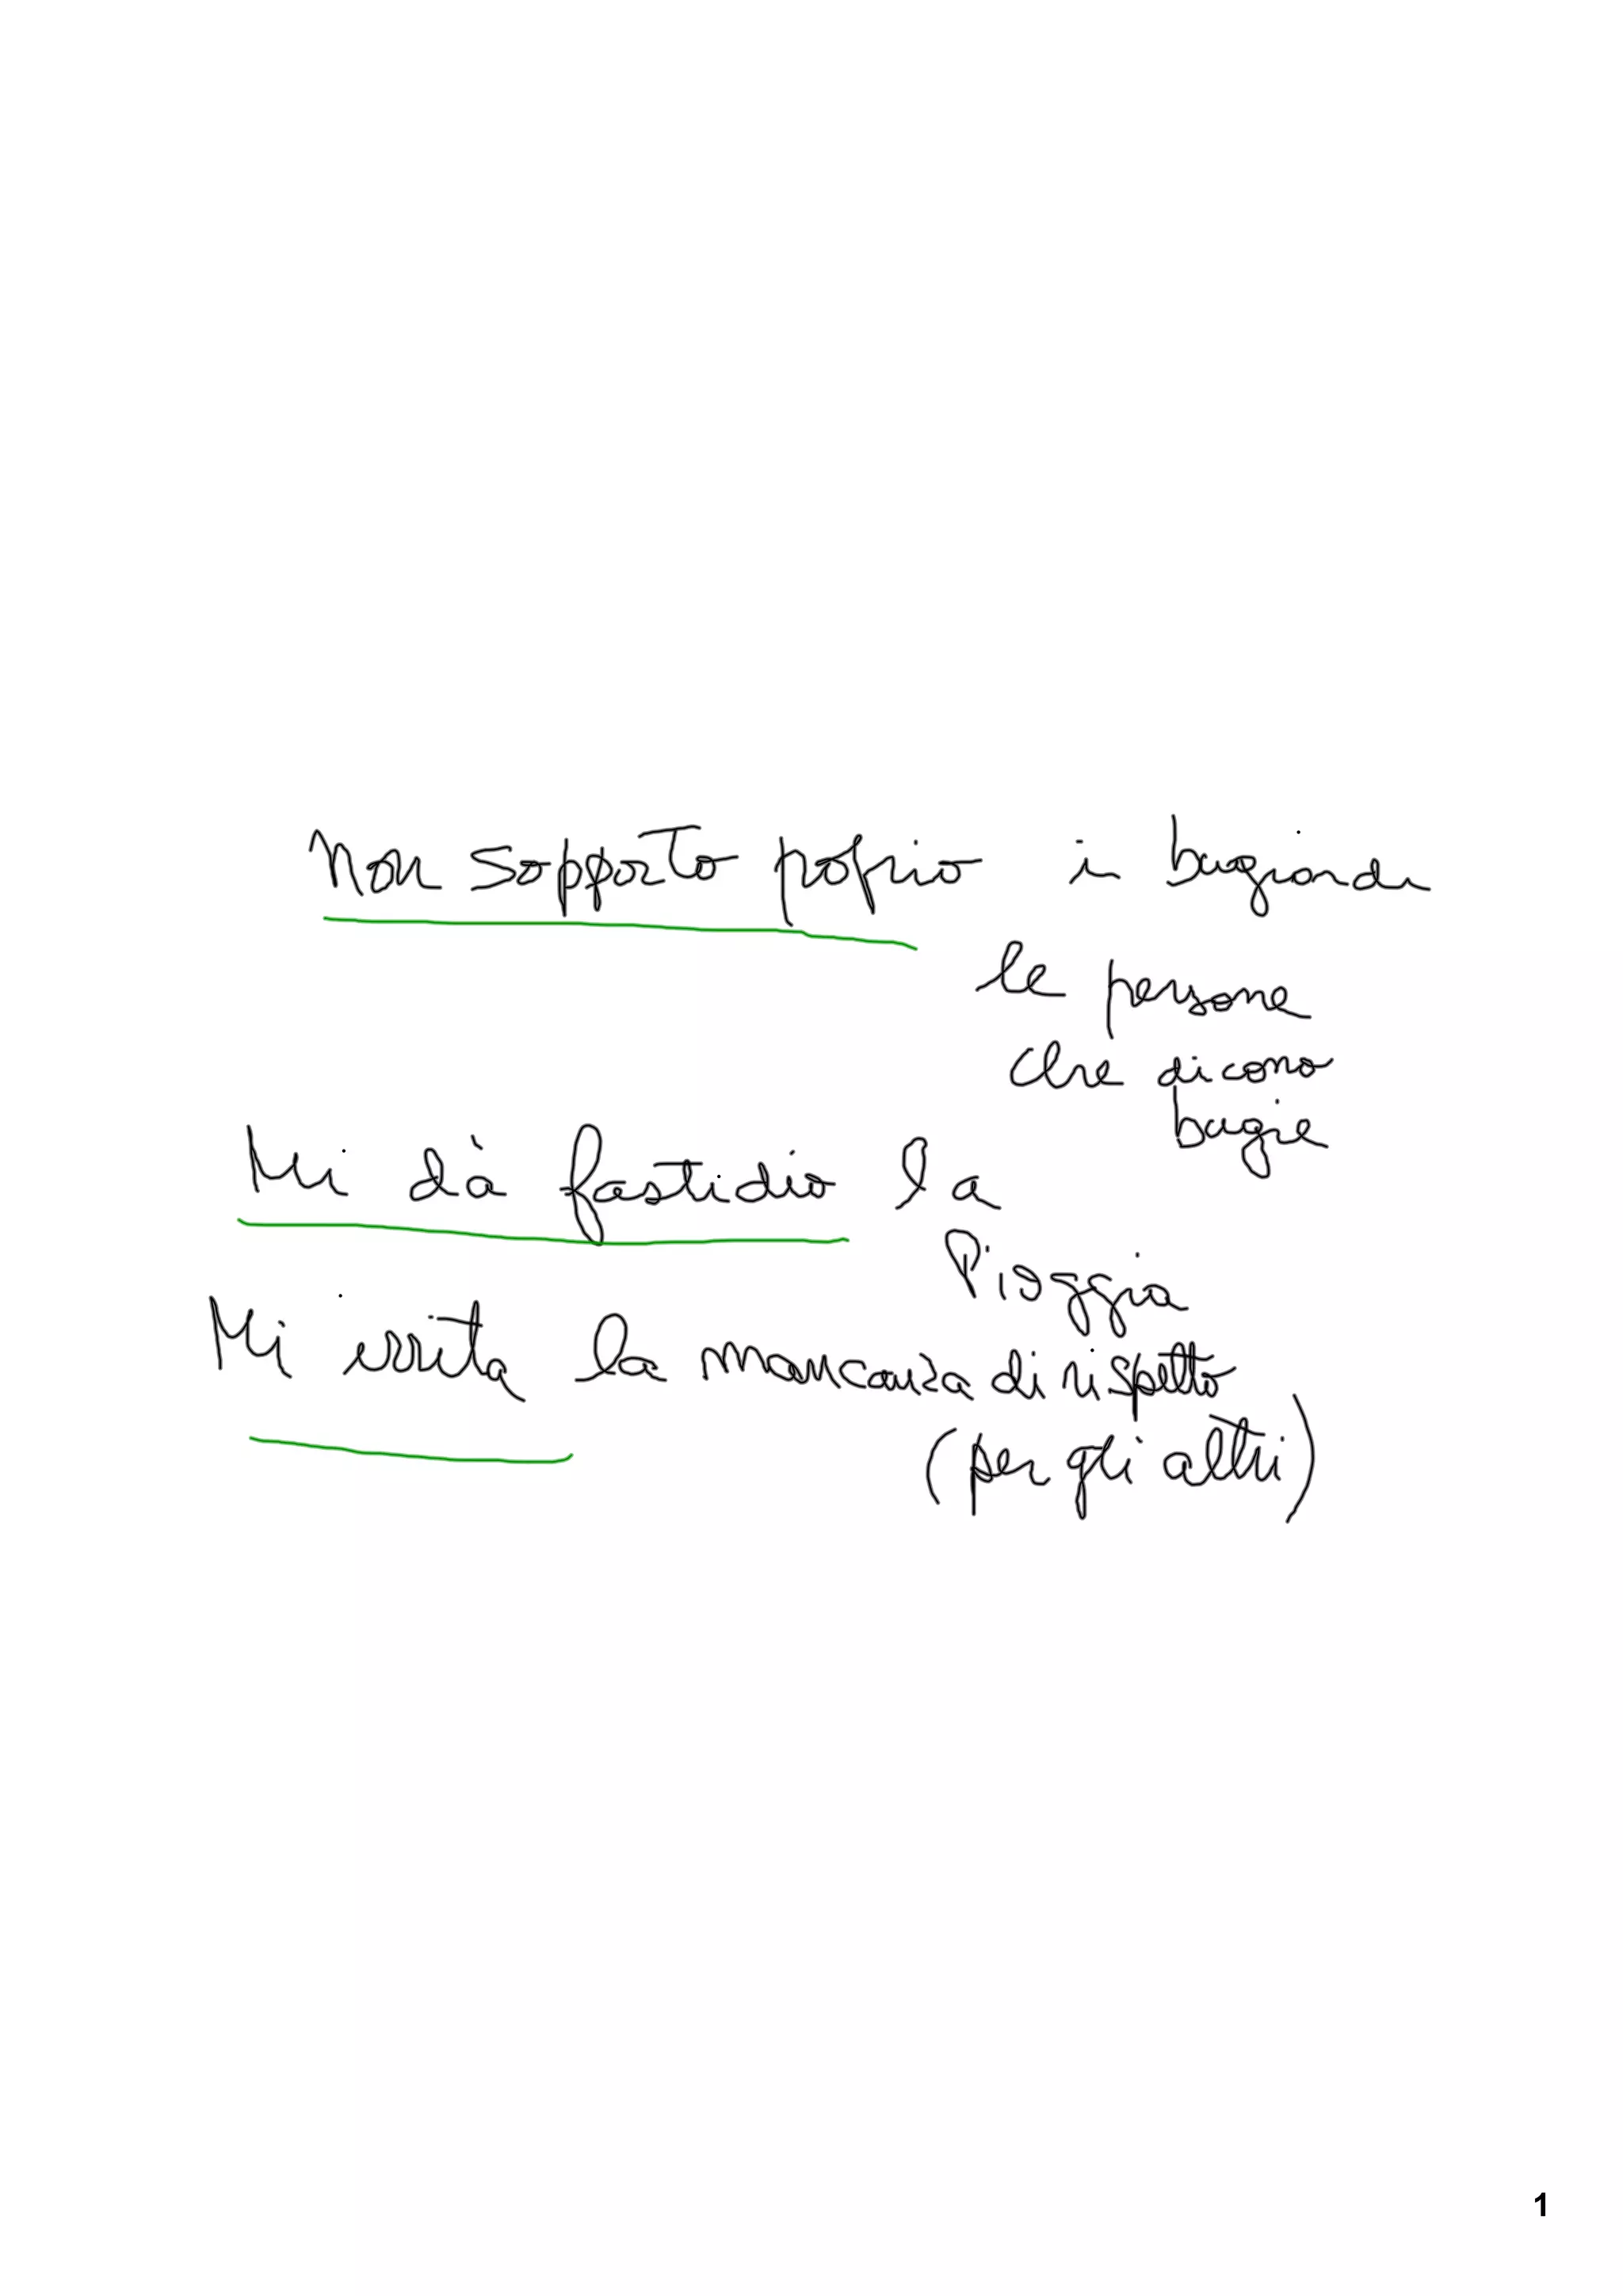 Non sopporto proprio i bugiardi
le persone
che dicono
bugie
Mi dà fastidio la
Pioggia
Mi irrita la mancanza di rispetto
(per gli altri)
1